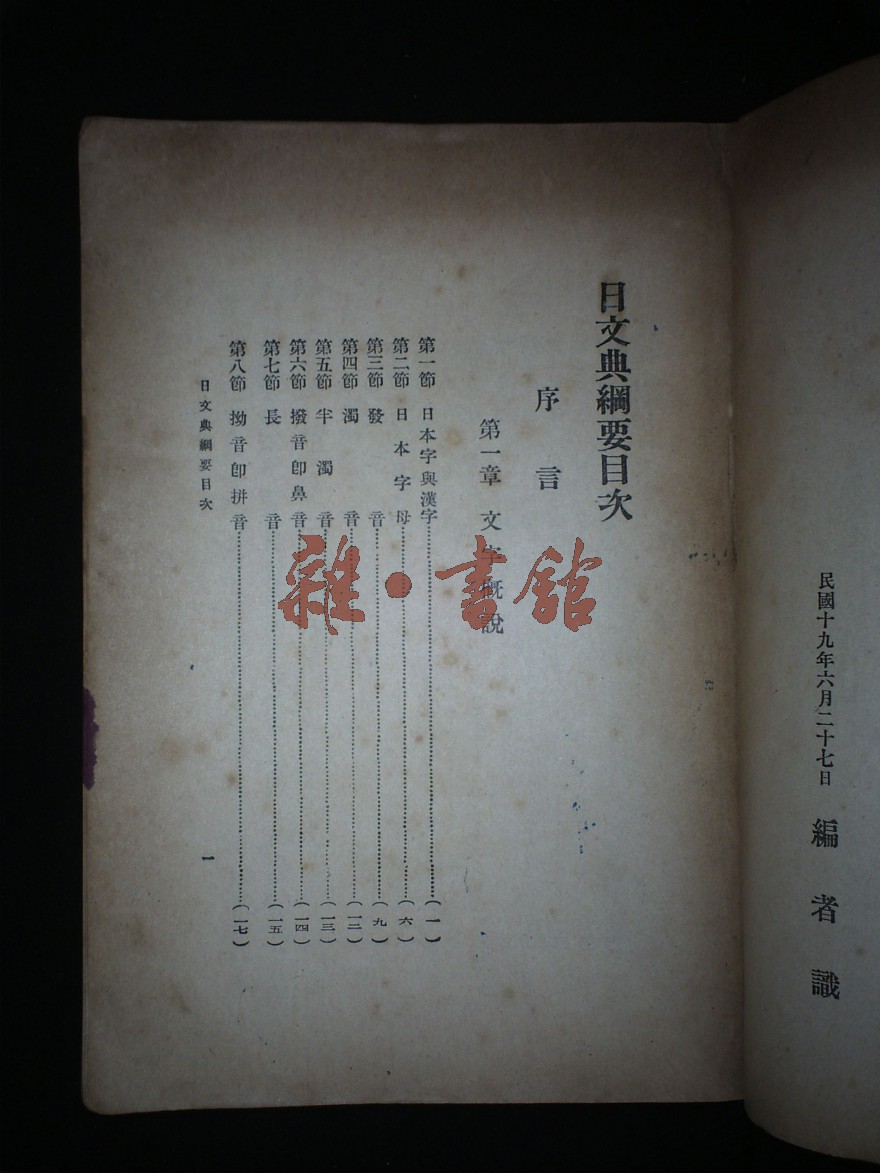 民國十九年六月二十七日 編者識
日文典綱要目次
序言
第一章 文字概說
第一節 日本字與漢字……(一)
第二節 日本字母……(六)
第三節 發音……(九)
第四節 濁音……(一二)
第五節 半濁音……(一三)
第六節 撥音卽鼻音……(一四)
第七節 長音……(一五)
第八節 拗音卽拼音……(一七)
日文典綱要目次 一
雜·書館